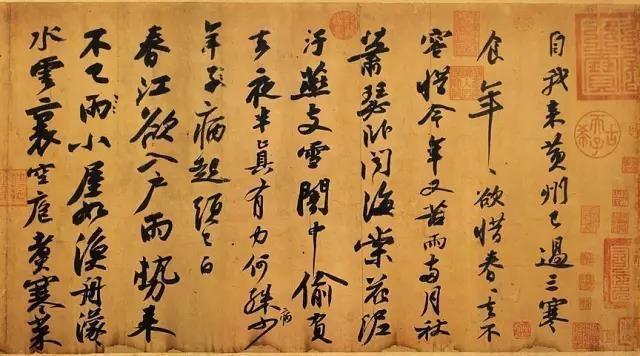 自我来黄州已過三寒
食年〻欲惜春〻去不
容惜今年又苦雨兩月秋
蕭瑟卧聞海棠花泥
汙燕支雪闇中偷負
去夜半真有力何殊少
年子病起須已白
春江欲入户雨势来
不已雨小屋如漁舟濛〻
水雲裏空庖煮寒菜